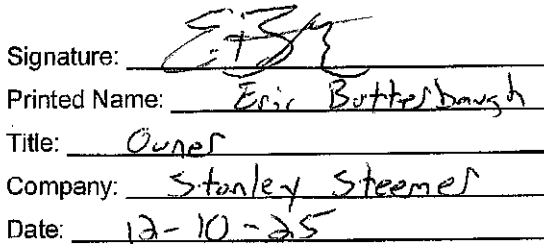 Signature:
Printed Name: Eric Butterbaugh
Title: Owner
Company: Stanley Steemer
Date: 12-10-25